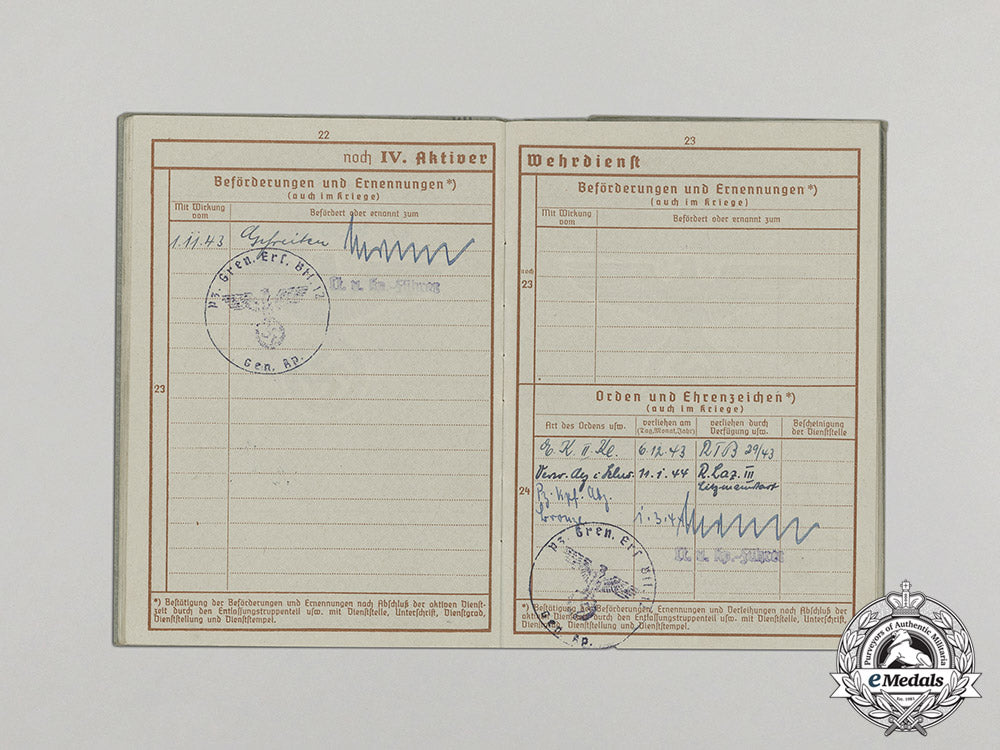 22
noch IV. Aktiver
Beförderungen und Ernennungen*)
(auch im Kriege)
Mit Wirkung vom
Befördert oder ernannt zum
1.11.43 Gefreiten
Lt. u. Kp.-Führer
Pz. Gren. Ers. Btl. 12
Gen. Kp.
23
*) Bestätigung der Beförderungen und Ernennungen nach Abschluß der aktiven Dienst-
zeit durch den Entlassungstruppenteil usw. mit Dienststelle, Unterschrift, Dienstgrad,
Dienststellung und Dienststempel.
23
Wehrdienst
Beförderungen und Ernennungen*)
(auch im Kriege)
Mit Wirkung vom
Befördert oder ernannt zum
noch
23
Orden und Ehrenzeichen*)
(auch im Kriege)
Art des Ordens usw.
verliehen am (Tag, Monat, Jahr)
verliehen durch Verfügung usw.
Bescheinigung der Dienststelle
E. K. II. Kl. 6.12.43 RTB 29/43
Verw. Abz. i. Schw. 11.1.44 R. Laz. III
Litzmannstadt
24
Pz. Kpf. Abz.
Bronze 1.3.44
Lt. u. Kp.-Führer
Pz. Gren. Ers. Btl.
Gen. Kp.
*) Bestätigung der Beförderungen, Ernennungen und Verleihungen nach Abschluß der
aktiven Dienstzeit durch den Entlassungstruppenteil usw. mit Dienststelle, Unterschrift,
Dienstgrad, Dienststellung und Dienststempel.
Purveyors of Authentic Militaria
eMedals
Est. 1985